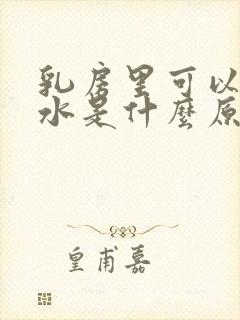 乳房里可以
水是什麼原
皇甫嘉